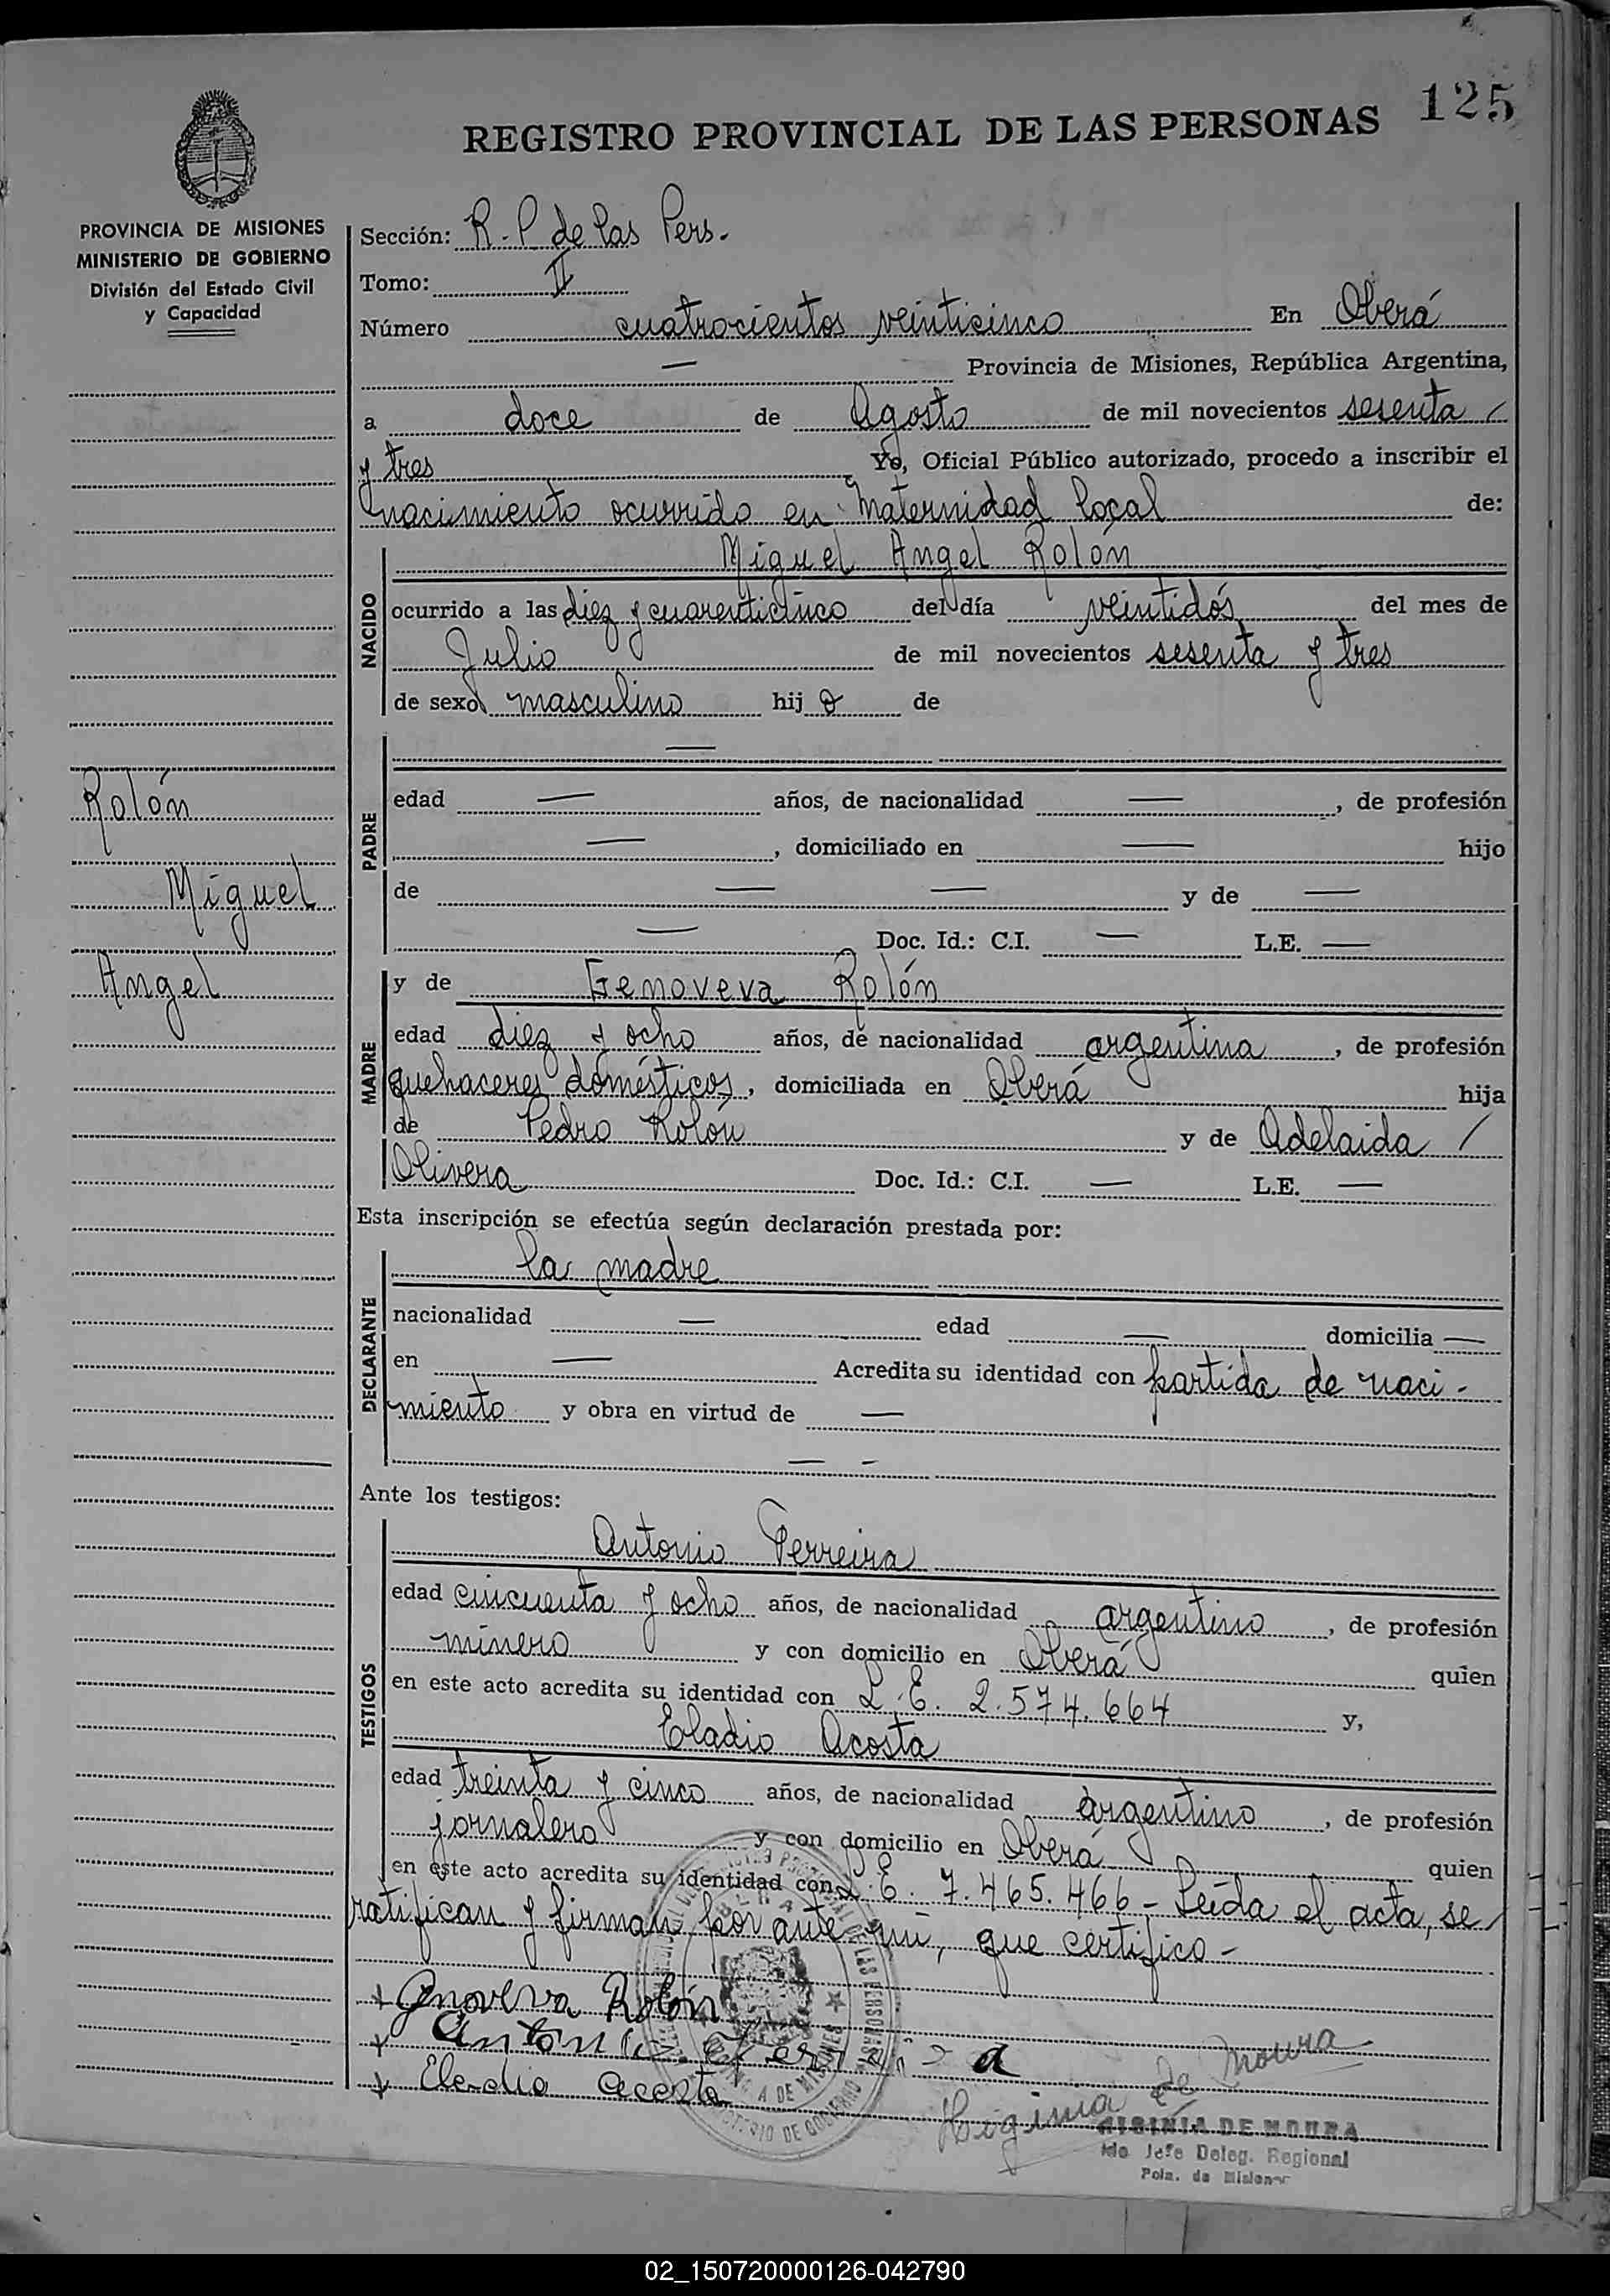 125
REGISTRO PROVINCIAL DE LAS PERSONAS
PROVINCIA DE MISIONES
MINISTERIO DE GOBIERNO
División del Estado Civil
y Capacidad
Rolón
Miguel
Angel
Sección: R. P de las Pers.
Tomo: II
Número cuatrocientos veinticinco En Oberá
— Provincia de Misiones, República Argentina,
a doce de Agosto de mil novecientos sesenta /
y tres Yo, Oficial Público autorizado, procedo a inscribir el
nacimiento ocurrido en Maternidad local de:
NACIDO
Miguel Angel Rolón
ocurrido a las diez y cuarenticinco del día veintidós del mes de
Julio de mil novecientos sesenta y tres
de sexo masculino hij o de
PADRE
—
edad — años, de nacionalidad —, de profesión
—, domiciliado en — hijo
de — — y de —
— Doc. Id.: C.I. — L.E. —
MADRE
y de Genoveva Rolón
edad diez y ocho años, de nacionalidad argentina, de profesión
quehaceres domésticos, domiciliada en Oberá hija
de Pedro Rolón y de Adelaida /
Olivera Doc. Id.: C.I. — L.E. —
Esta inscripción se efectúa según declaración prestada por:
DECLARANTE
la madre
nacionalidad — edad — domicilia —
en — Acredita su identidad con partida de naci-
miento y obra en virtud de —
— -
Ante los testigos:
TESTIGOS
Antonio Ferreira
edad cincuenta y ocho años, de nacionalidad argentino, de profesión
minero y con domicilio en Oberá quien
en este acto acredita su identidad con L.E. 2.574.664 y,
Eladio Acosta
edad treinta y cinco años, de nacionalidad argentino, de profesión
jornalero y con domicilio en Oberá quien
en este acto acredita su identidad con L.E. 7.465.466 - Leída el acta, se
ratifican y firman por ante mí, que certifico -
Genoveva Rolón
Antonio
Eladio Acosta
Higinia de Moura
HIGINIA DE MOURA
Jefe Deleg. Regional
02_150720000126-042790